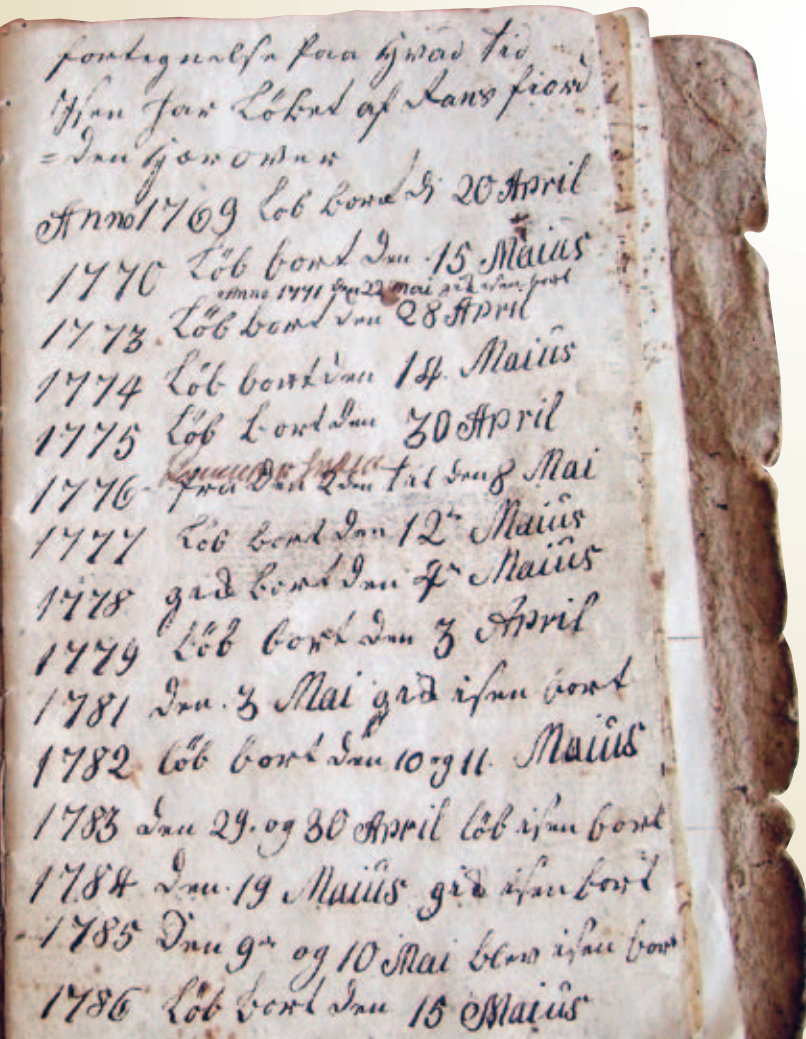 Fortegnelse paa Hvad Tid
Isen har Løbet af Rans fiord
=den Hærover
Anno 1769 Løb bort d: 20 April
1770 Løb bort den 15 Maius
Anno 1771 den 22 mai gik isen bort
1773 Løb bort den 28 April
1774 Løb bort den 14 Maius
1775 Løb bort den 30 April
1776 fra den 2den til den 8 Mai
1777 Løb bort den 12te Maius
1778 gik bort den 4de Maius
1779 Løb bort den 3 April
1781 den 3 Mai gik isen bort
1782 løb bort den 10 og 11 Maius
1783 den 29. og 30 April løb isen bort
1784 den 19 Maius gik isen bort
1785 Den 9de og 10 Mai blev isen bor
1786 Løb bort den 15 Maius